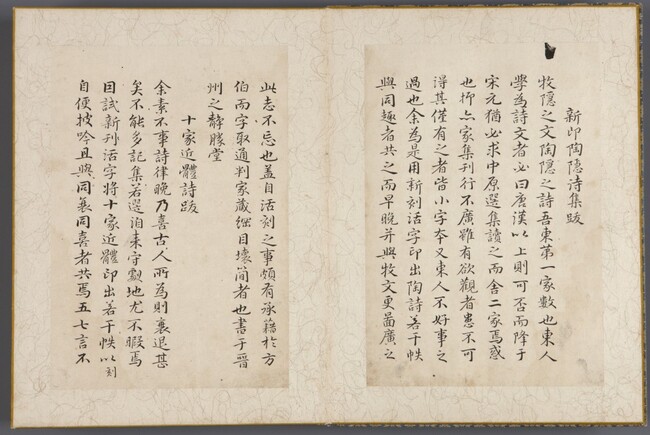 新印陶隱诗集跋
牧隱之文陶隱之詩吾東第一家數也東人
學為詩文者必曰唐漢以上則可否而降于
宋元猶必求中原選集讀之而舍二家焉惑
也抑二家集刊行不廣雖有欲觀者患不可
得其僅有之者皆小字夲又東人不好事之
過也余為是用新刻活字印出陶詩若干帙
與同趣者共之而早晚并與牧文更啚廣之
此志不忘也盖自活刻之事頗有承藉於方
伯而字取通判家藏綱目壞簡者也書于晋
州之静勝堂
十家近軆詩跋
余素不事詩律晚乃喜古人所為則衰退甚
矣不能多記集若選洎來守劇地尤不暇焉
囙試新刊活字將十家近軆印出若干帙以刻
自便披吟且與同衰同喜者共焉五七言不